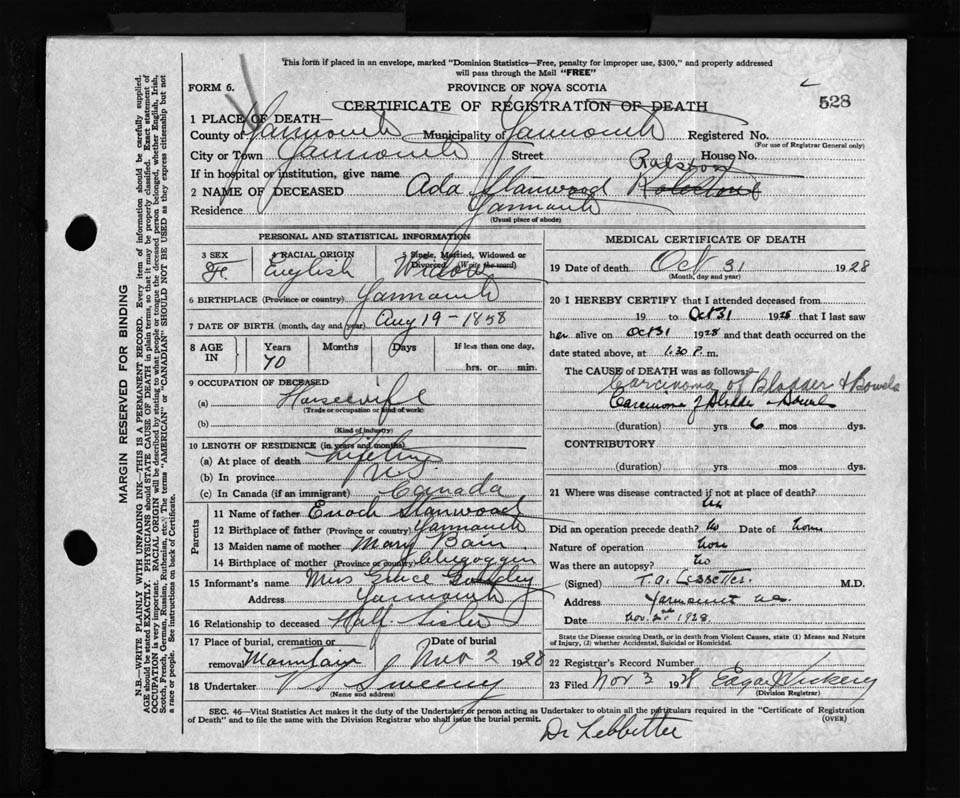 This form if placed in an envelope, marked "Dominion Statistics—Free, penalty for improper use, $300," and properly addressed
will pass through the Mail "FREE"
FORM 6. PROVINCE OF NOVA SCOTIA
CERTIFICATE OF REGISTRATION OF DEATH 528
1 PLACE OF DEATH—
County of Yarmouth Municipality of Yarmouth Registered No.
(For use of Registrar General only)
City or Town Yarmouth Street House No.
If in hospital or institution, give name Ralston
2 NAME OF DECEASED Ada Stanwood
Residence Yarmouth
(Usual place of abode)
PERSONAL AND STATISTICAL INFORMATION
3 SEX 4 RACIAL ORIGIN 5 Single, Married, Widowed or Divorced (Write the word)
Fe English Widow
6 BIRTHPLACE (Province or country) Yarmouth
7 DATE OF BIRTH (month, day and year) Aug 19 - 1858
8 AGE IN Years Months Days If less than one day,
70 hrs. or min.
9 OCCUPATION OF DECEASED
(a) Housewife
(Trade or occupation or kind of work)
(b)
(Kind of industry)
10 LENGTH OF RESIDENCE (in years and months)
(a) At place of death Lifetime
(b) In province N.S.
(c) In Canada (if an immigrant) Canada
Parents
11 Name of father Enoch Stanwood
12 Birthplace of father (Province or country) Yarmouth
13 Maiden name of mother Mary Bain
14 Birthplace of mother (Province or country)
15 Informant's name Mrs Grace
Address Yarmouth
16 Relationship to deceased Half-sister
17 Place of burial, cremation or removal Mountain Date of burial Nov 2 1928
18 Undertaker Sweeny
(Name and address)
MEDICAL CERTIFICATE OF DEATH
19 Date of death Oct 31 1928
(Month, day and year)
20 I HEREBY CERTIFY that I attended deceased from
19 to Oct 31 1928 that I last saw
her alive on Oct 31 1928 and that death occurred on the
date stated above, at 1.30 P. m.
The CAUSE OF DEATH was as follows:
Carcinoma of Bladder & Bowels
Carcinoma of Bladder & Bowel
(duration) yrs 6 mos dys.
CONTRIBUTORY
(duration) yrs. mos. dys.
21 Where was disease contracted if not at place of death?
Did an operation precede death? No Date of none
Nature of operation none
Was there an autopsy? no
(Signed) T.A. Lebbetter M.D.
Address Yarmouth N.S.
Date Nov. 2nd 1928
State the Disease causing Death, or in death from Violent Causes, state (1) Means and Nature
of Injury, (2) whether Accidental, Suicidal or Homicidal.
22 Registrar's Record Number
23 Filed Nov 3 1928 Edgar Vickery
(Division Registrar)
SEC. 46—Vital Statistics Act makes it the duty of the Undertaker or person acting as Undertaker to obtain all the particulars required in the "Certificate of Registration
of Death" and to file the same with the Division Registrar who shall issue the burial permit. (OVER)
Dr Lebbetter
MARGIN RESERVED FOR BINDING
N.B.—WRITE PLAINLY WITH UNFADING INK—THIS IS A PERMANENT RECORD. Every item of information should be carefully supplied.
AGE should be stated EXACTLY. PHYSICIANS should STATE CAUSE OF DEATH in plain terms, so that it may be properly classified. Exact statement of
OCCUPATION is very important. RACIAL ORIGIN will be described by stating to what people or tongue the deceased person belonged, whether English, Irish,
Scotch, French, German, Russian, Ruthenian, etc.) The terms "AMERICAN" or "CANADIAN" SHOULD NOT BE USED as they express citizenship but not
a race or people. See instructions on back of Certificate.